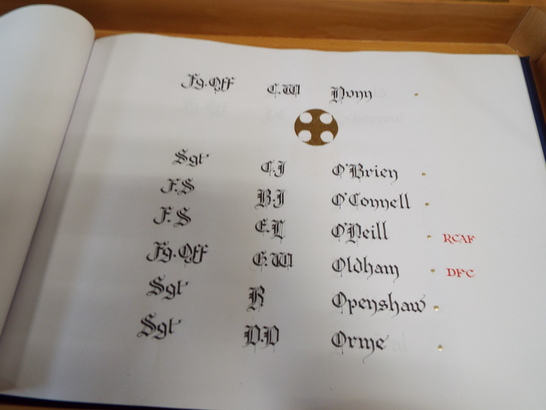 Fg.Off C.W Nonn
Sgt C.J O'Brien
F.S B.J O'Connell
F.S E.L O'Neill RCAF
Fg.Off G.W Oldham DFC
Sgt R Openshaw
Sgt D.D Orme